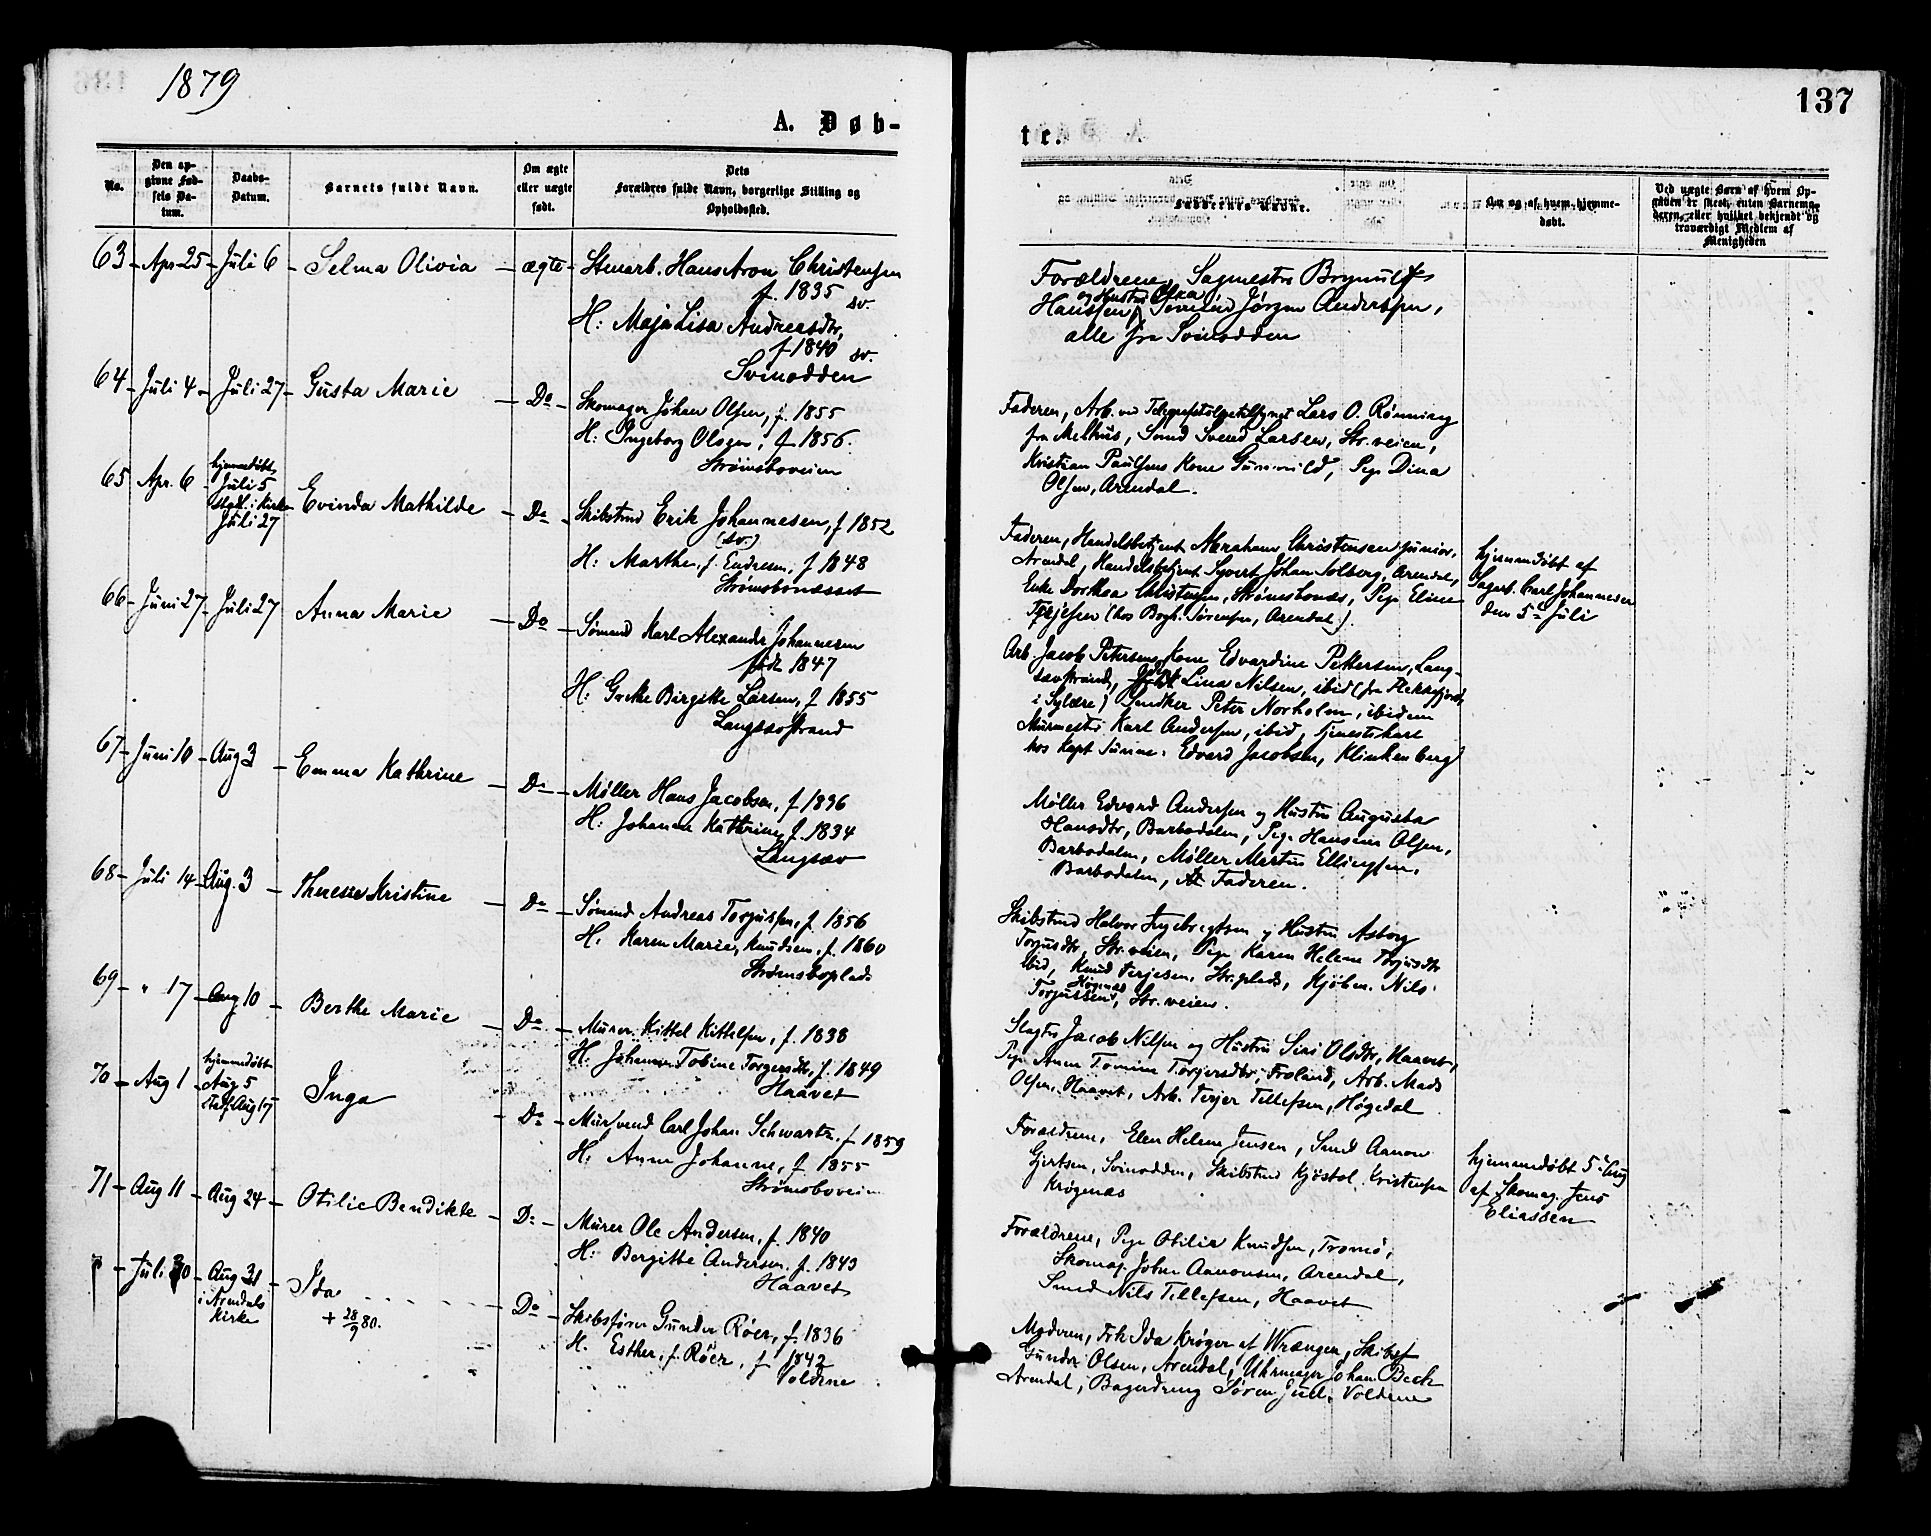 1879
137
A. Døb-
te.
No.
Den op-
givne Fød-
sels Da-
tum.
Daabs-
Datum.
Barnets fulde Navn.
Om ægte
eller uægte
født.
Dets
Forældres fulde Navn, borgerlige Stilling og
Opholdssted.
Faddernes Navne.
Om og af hvem hjemme-
døbt.
Ved uægte Børn af hvem Op-
gaven er skeet, enten Barnemo-
deren, eller hvilket bekjendt og
troværdigt Medlem af
Menigheden
63 - Apr 25 - Juli 6 - Selma Olivia - ægte - Stenarb. Hans Aron Christensen
f. 1835 sv.
H: Maja Lisa Andreasdtr,
f 1840 sv.
Svinodden
Forældrene, Sagmester Brynulf
og Hustru
Hanssen, Sømand Jørgen Anderssen,
alle fra Svinodden
64 - Juli 4 - Juli 27 - Gusta Marie - Do - Skomager Johan Olsen, f. 1855
H: Ingeborg Olsen, f 1856.
Strømsboveien
Faderen, Arb. ved Lars O. Rønning
fra Melhus, Smed Svend Larsen, Str. veien,
Kristian Paulsens Kone Gunnild, Pige Dina
Olsen, Arendal.
65 Apr. 6 - hjemmedøbt
Juli 5
stadf. i Kirken
Juli 27
Evinda Mathilde - Do - Skibstmd Erik Johannesen, f 1852
(sv.)
H: Marthe, f. Endresen, f 1848
Strømsbonæsset
Faderen, Handelsbetjent Abraham Christensen junior,
Arendal, Handelsbetjent Syvert Johan Solberg, Arendal,
Enke Dorthea Christensen, Strømsbonæs, Pige Eline
Terjesen (hos Bogh. Sørensen, Arendal).
hjemmedøbt af
Sagarb. Carl Johannesen
den 5te Juli
66 - Juni 27 - Juli 27 Anna Marie - Do - Sømand Karl Alexander Johannesen
født 1847
H: Grethe Birgitte Larsen, f 1855
Langsæstrand
Arb. Jacob Petersens Kone Edvardine Pettersen, Lang-
sævstrand, Lina Nilsen, ibid (fra Flekkefjord,
i Sylære) Snedker Peter Norholm, ibidem
Murmester Karl Andersen, ibid, Tjenestekarl
hos Kapt Edvard Jacobsen, Klinkenberg
67 - Juni 10 - Aug 3 - Emma Kathrine - Do - Møller Hans Jacobsen, f 1836
H: Johanne Kathrine, f. 1834
Langsæv
Møller Edvard Andersen og Hustru Augusta
Hansdtr, Barbodalen, Pige Hansine Olsen,
Barbodalen, Møller Martin Ellingsen,
Barbodalen, Faderen.
68 - Juli 14 - Aug. 3 - Therese Kristine - Do - Sømand Andreas Torjussen, f. 1856
H. Karen Marie, Knudsen, f. 1860
Strømsboplads
Skibstmd Halvor Ingebregtsen og Hustru Asborg
Torjusdtr, Str. veien, Pige Karen Helene Torjusdtr
ibid, Knud Terjesen, Str. plads, Kjøbm. Nils
Høgenæs
Torjussen, Str. veien.
69 - " 17 - Aug 10 - Berthe Marie - Do - Murer Kittel Kittelsen, f. 1838
H: Johanne Tobine Torgersdtr, f. 1849
Haavet
Slagter Jacob Nilsen og Hustru Siri Olsdtr, Haavet,
Pige Anne Tomine Torjersdtr, Froland, Arb. Mads
Olsen, Haavet, Arb. Terjer Tellefsen, Høgedal
70 - Aug 1 - hjemmedøbt
Aug 5
stadf. Aug 17
Inga - Do - Mursvend Carl Johan Schwartz, f 1859
H: Anne Johanne, f. 1855
Strømsboveien
Forældrene, Elen Helene Jensen, Smed Aanon
Gjertsen, Svinodden, Skibstmd Kjøstol Kristensen
Krøgenæs
hjemmedøbt 5te Aug
af Skomag. Jens
Eliassen
71 - Aug 11 - Aug 24 - Otilie Bendikte - Do - Murer Ole Andersen, f. 1840
H: Bergitte Andersen, f. 1843
Haavet
Forældrene, Pige Otilie Knudsen, Tromø,
Skomag. Johan Aanonsen, Arendal,
Smed Nils Tellefsen, Haavet
- Juli 30 - Aug 31
i Arendals
Kirke
- Ida
+ 28/9 80.
- Do - Skibsfører Gunder Röer, f. 1836
H. Esther, f. Röer, f 1842
Voldene
Moderen, Frk Ida Krøger af Wrængen, Skibsf
Gunder Olsen, Arendal, Uhrmager Johan Beck
Arendal, Bagerdreng Søren Juel, Voldene